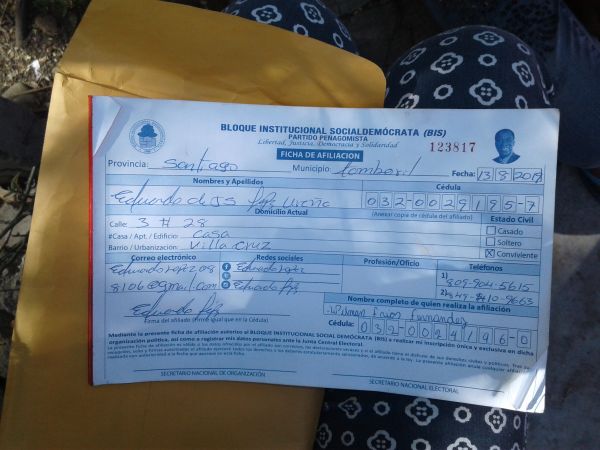 BLOQUE INSTITUCIONAL SOCIALDEMÓCRATA (BIS)
PARTIDO PEÑAGOMISTA
Libertad, Justicia, Democracia y Solidaridad
123817
FICHA DE AFILIACION
Provincia: Santiago Municipio: Tamboril Fecha: 13/8/2019
Nombres y Apellidos Cédula
Eduardo de Js Ureña 032-0029195-7
Domicilio Actual (Anexar copia de cédula del afiliado) Estado Civil
Calle: 3 # 28 Casado
#Casa / Apt. / Edificio: Casa Soltero
Barrio / Urbanización: Villa Cruz X Conviviente
Correo electrónico Redes sociales Profesión/Oficio Teléfonos
Eduardo Eduardo 1) 809-904-5615
8106@gmail.com Eduardo 2) 849-410-9663
Nombre completo de quien realiza la afiliación
Eduardo Fernandez
Firma del afiliado (firme igual que en la Cédula) Cédula: 032-0024196-0
Mediante la presente ficha de afiliación autorizo al BLOQUE INSTITUCIONAL SOCIAL DEMÓCRATA (BIS) a realizar mi inscripción única y exclusiva en dicha
organización política, así como a registrar mis datos personales ante la Junta Central Electoral.
SECRETARIO NACIONAL DE ORGANIZACIÓN SECRETARIO NACIONAL ELECTORAL